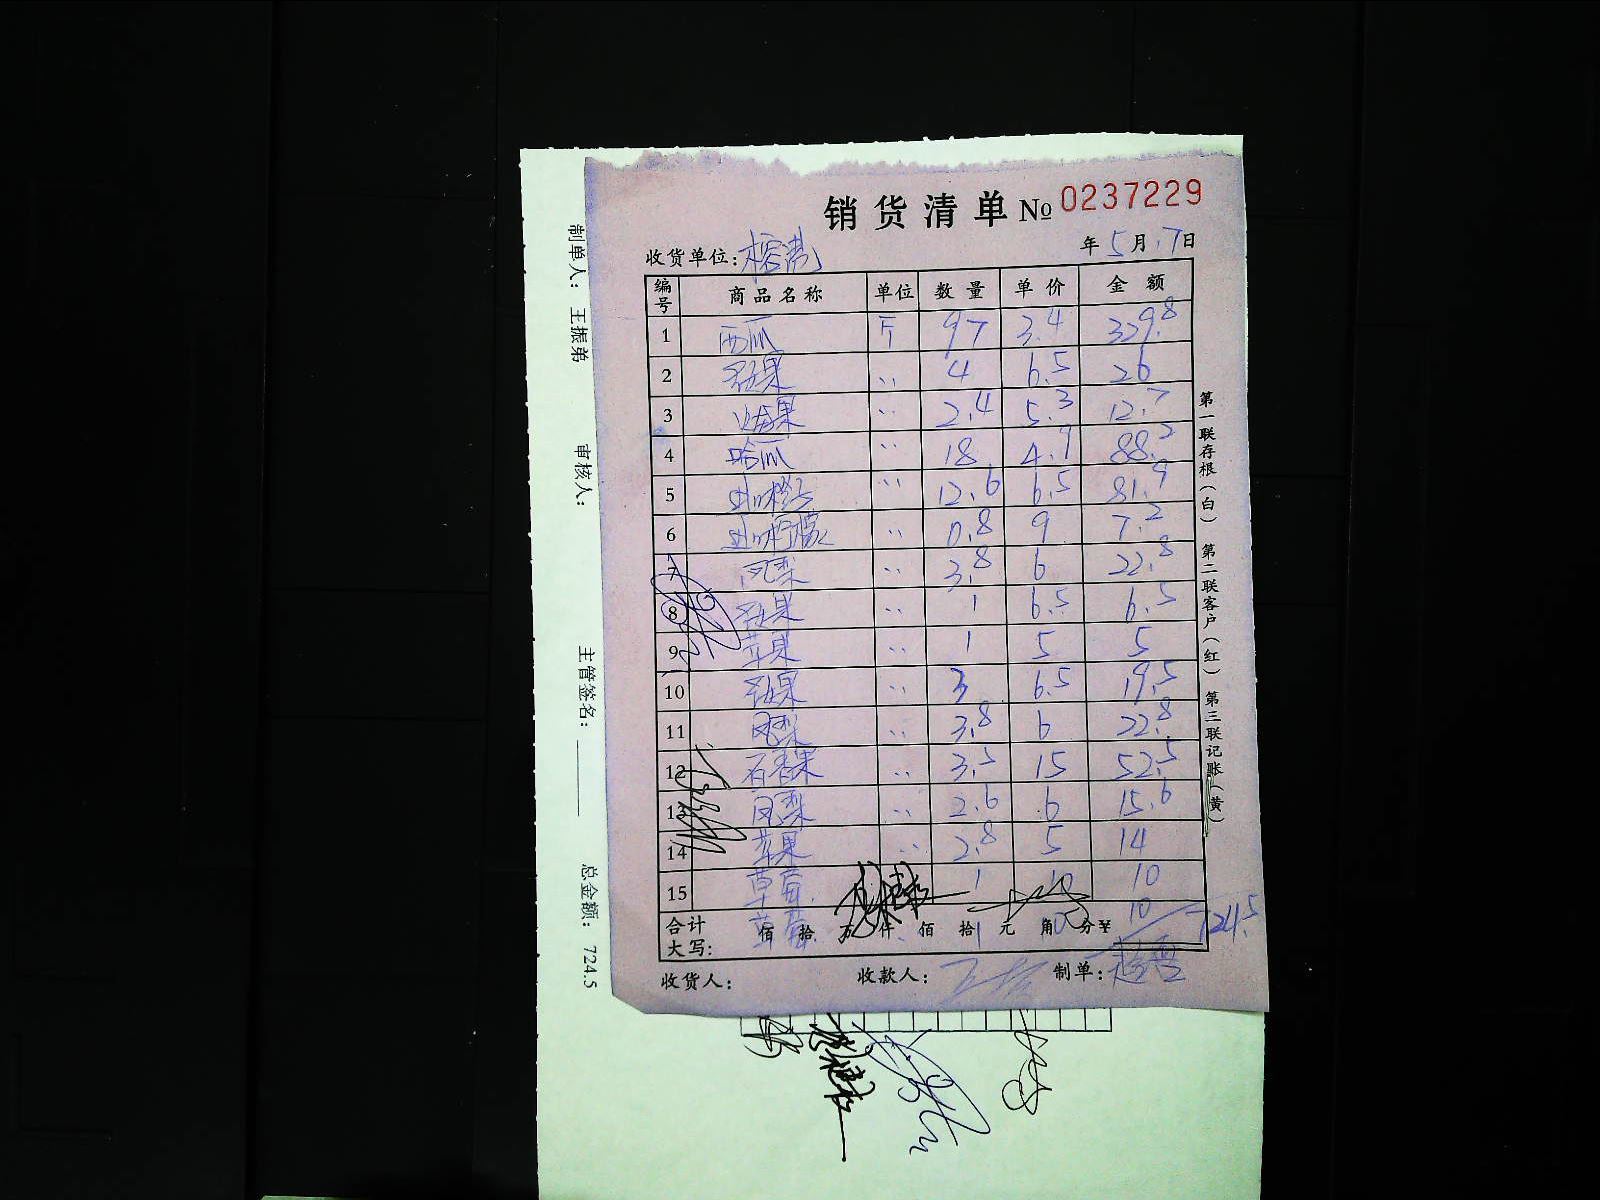 销货清单 № 0237229
收货单位: 年 5 月 17 日
编号 商品名称 单位 数量 单价 金额
1 西瓜 斤 97 3.4 329.8
2 果 〃 4 6.5 26
3 果 〃 2.4 5.3 12.7
4 哈瓜 〃 18 4.9 88.2
5 橙子 〃 12.6 6.5 81.9
6 柠檬 〃 0.8 9 7.2
7 凤梨 〃 3.8 6 22.8
8 果 〃 1 6.5 6.5
9 苹果 〃 1 5 5
10 果 〃 3 6.5 19.5
11 凤梨 〃 3.8 6 22.8
12 百香果 〃 3.5 15 52.5
13 凤梨 〃 2.6 6 15.6
14 苹果 〃 2.8 5 14
15 草莓 1 10 10
草莓 1 10 10
合计大写: 佰 拾 万 仟 佰 拾 元 角 分 ¥ 724.5
收货人: 收款人: 制单:
第一联存根(白) 第二联客户(红) 第三联记账(黄)
制单人: 王振弟 审核人: 主管签名: 总金额: 724.5